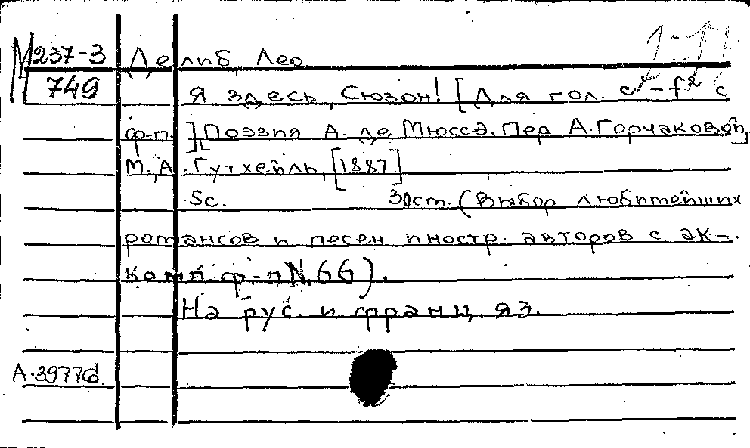 М237-3 Делиб, Лео
749 Я здесь, Сюзон! [Для гол. c¹-f² с
ф.-п.]. Поэзия А. де Мюссэ. Пер А. Горчаковой,
М., А. Гутхейль, [1887]
5с. 30ст. (Выбор любитейших
романсов и песен иностр. авторов с ак-
комп ф-п N.66).
На рус. и франц. яз.
А.3977d.